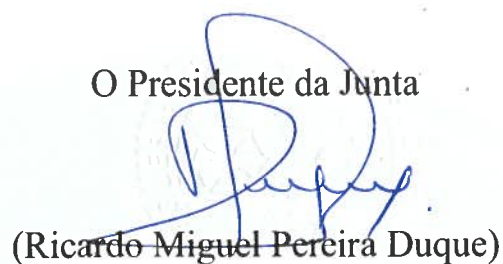 O Presidente da Junta
Duque
(Ricardo Miguel Pereira Duque)